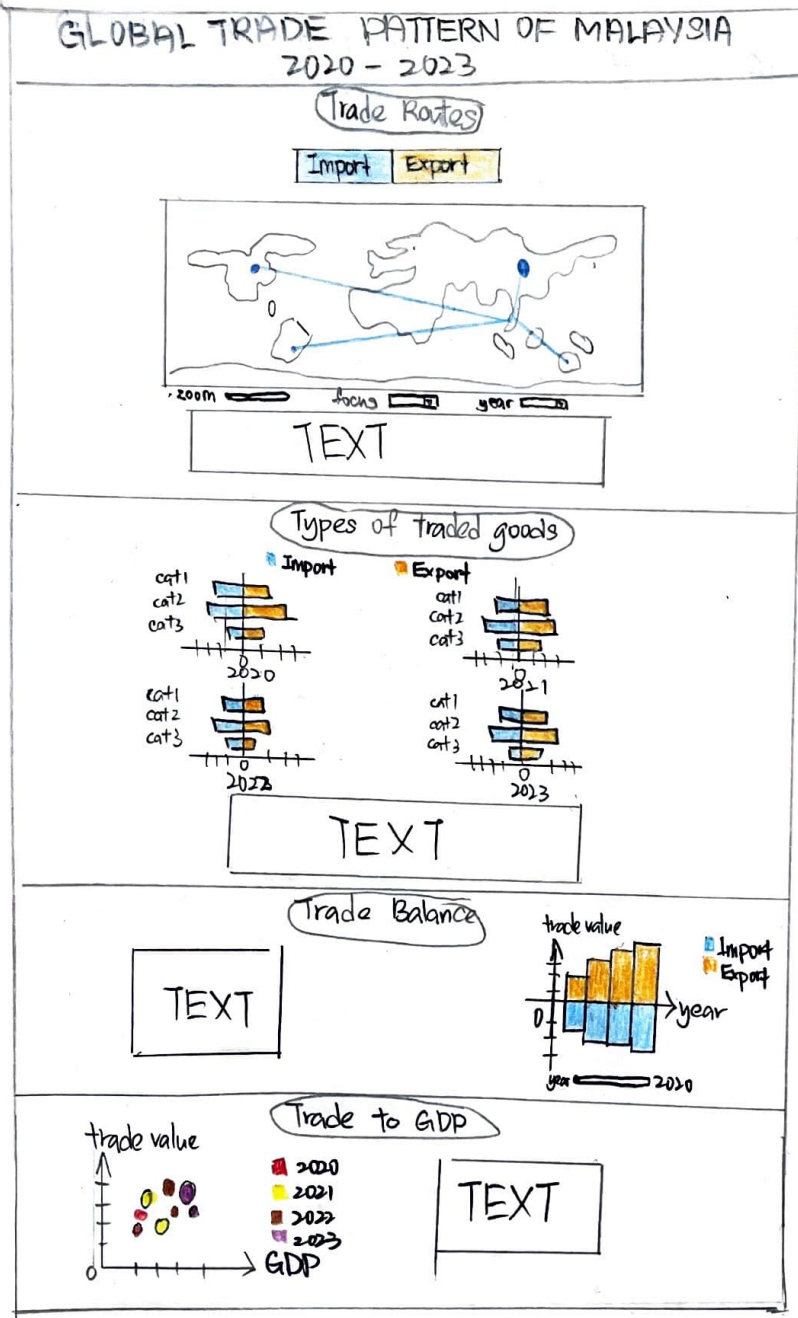 GLOBAL TRADE PATTERN OF MALAYSIA
2020 - 2023
Trade Routes
Import Export
zoom focus year
TEXT
Types of traded goods
Import Export
cat1
cat2
cat3
0
2020
cat1
cat2
cat3
0
2021
cat1
cat2
cat3
0
2022
cat1
cat2
cat3
0
2023
TEXT
Trade Balance
TEXT
trade value
Import
Export
0
year
year 2020
Trade to GDP
trade value
0
GDP
2020
2021
2022
2023
TEXT